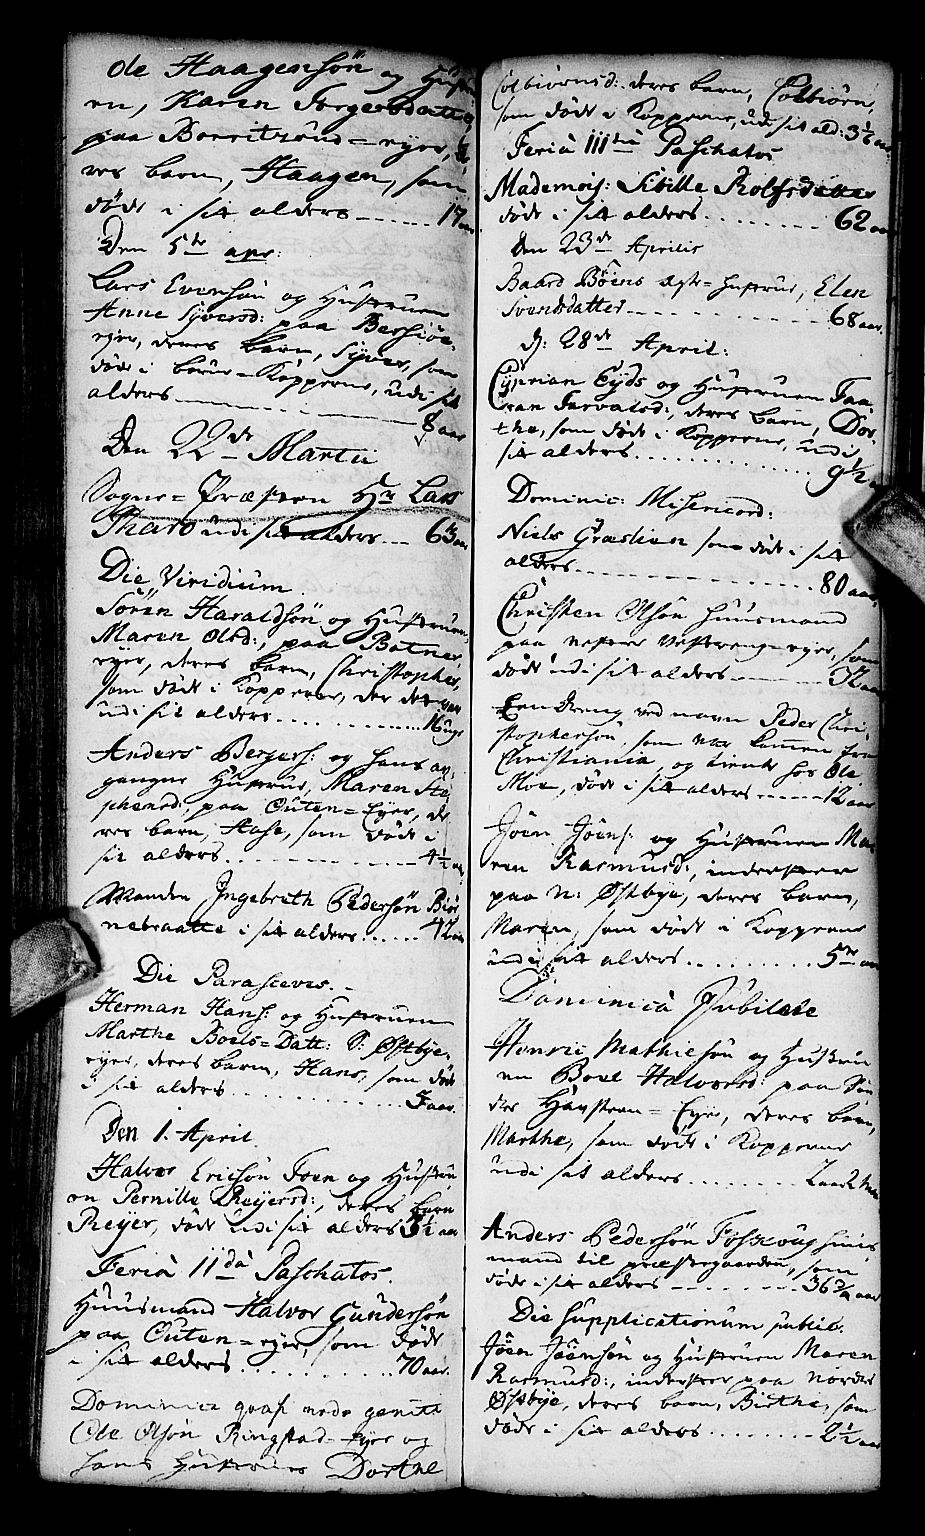 de Haagensön og Hustru
en, Karen Torgersdatter
paa Borritzünd-eyer, de
res barn, Haagen, som
döde i sit alders 17 aar
Den 5te apr:
Lars Evensön og Hustruen
Anne Syversd: paa
eyer, deres barn, Syver, som
döde i börne-Kopperne, udi sit
alders 8 aar
Den 22de Martii
Sogne-Præsten Hr Lars
Tharo udi sit alders 63 aar
Die Viridium.
Sören Haraldsön og Hustruen,
Maren Olsd:, paa Botner
eyer, deres barn, Christopher,
som döde i Kopperne, der det var
udi sit alders 16 uger
Anders Bergers: og hans af-
gangne Hustrue, Maren Ste
phensd: paa Outen-Eyer, de
res barn, Aase, som döde i
sit alders 4½ aar
Manden Ingebreth Pedersön Biör
nebraatte i sit alders 42 aar
Die Parasceves.
Herman Hans: og Hustruen
Marthe Boels-Datt: S: Østbye-
eyer, deres barn, Hans, som döde
i sit alders 5 aar.
Den 1. April.
Halvor Ericsön Toen og Hustru
en Pernille Reyersd:, deres barn
Reyer, döde udi sit alders 3½ aar
Feria IIda Paschatos.
Huusmand Halvor Gundersön
paa Outen-eyer, som döde
i sit alders 70 aar.
Dominica qvasi modo geniti
Ole Olsön Ringstad-eyer og
hans Hustrues Dorthe
Colbiörnsd: deres barn, Colbiörn,
som döde i Kopperne, udi sit ald: 3½ aar
Feria IIItia Paschatos
Mademois: Sibille Rolfsdatter
döde i sit alders 62 aar
Den 23de Aprilis
Baard Böens Hustrue, Elen
Svendsdatter 68 aar.
d: 28de April:
Cyprian Eyds og Hustruen Taa
ran Torvalsd:, deres barn, Dor
the, som döde i Kopperne, udi
sit alders 9½ a
Dominic: Misericord:
Niels Græslien som döde i sit
alders 80 aar.
Christen Olsön Huusmand
paa nefver Vestreng-eyer, som
döde udi sit alders 32 aar
Een dreng ved navn Peder Chri-
stophersön, som var kommen fra
Christiania, og tiente hos Ole
Moe, döde i sit alders 12 aar
Jöen Jöens: og Hustruen Ma
ren Rasmusd:, inderster
paa N: Østbye, deres barn,
Maren, som döde i Kopperne
udi sit alders 5te aar
Dominica Jubilate
Henric Mathiesön og Hustru
en Boel Halvorsd: paa Sön
dre Haysteen-Eyer, deres barn,
Marthe, som döde i Kopperne
udi sit alders 2 aar
Anders Pedersön Foskoug huus
mand til præstegaarden, som
döde i sit alders 36¾ aar
Die supplicationum public.
Jöen Jöensön og Hustruen Maren
Rasmusd:, inderster paa nordre
Østbye, deres barn, Birthe, som
döde i sit alders 2½ aar